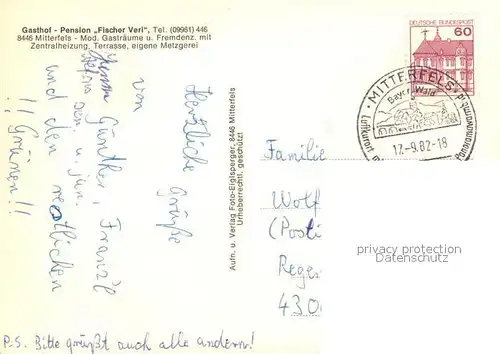 Gasthof - Pension „Fischer Veri", Tel. (09961) 446
8446 Mitterfels - Mod. Gasträume u. Fremdenz. mit
Zentralheizung, Terrasse, eigene Metzgerei
Herzliche Grüße
von
Günther, Franzl
sen. u. jun.
und den restlichen
!! Grünen!!
P.S. Bitte grüßt auch alle andern!
Aufn. u. Verlag Foto-Eiglsperger, 8446 Mitterfels
Urheberrechtl. geschützt
DEUTSCHE BUNDESPOST
60
MITTERFELS
Bayer. Wald
Luftkurort
17.-9.82-18
Familie
Wolf
(Posti
Reger
430
privacy protection
Ansichtskartenhandel.de